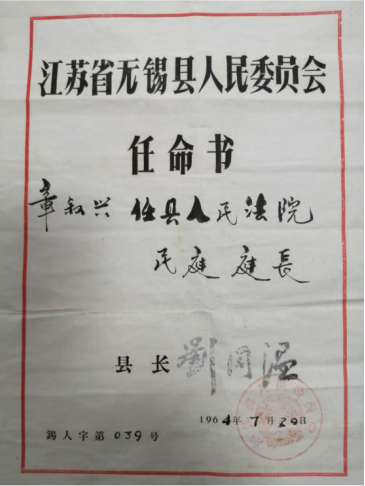 江苏省无锡县人民委员会
任命书
章叙兴 任县人民法院
民庭 庭長
县长 劉同温
1964年7月20日
錫人字第039号